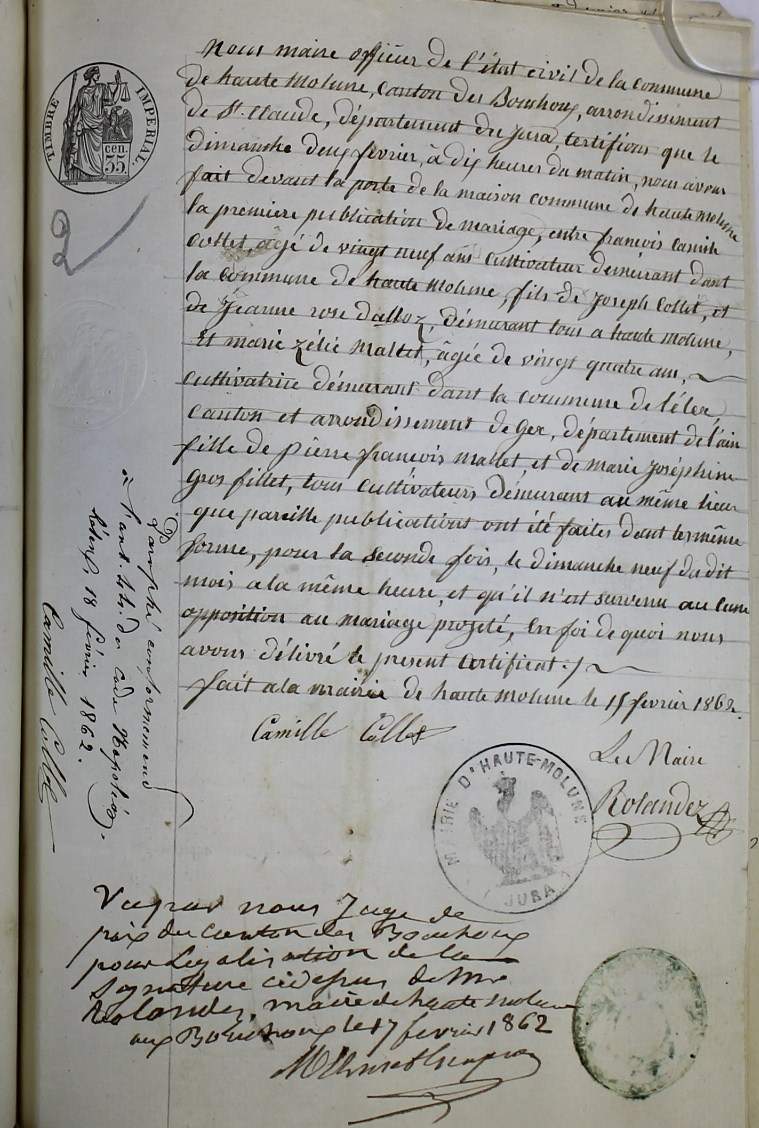 TIMBRE IMPERIAL
cen.
55
Nous maire officier de l'état civil de la Commune
de haute Molune, Canton des Bouchoux, arrondissement
de St. Claude, département du jura, Certifions que le
dimanche deux février, à dix heures du matin, nous avons
fait devant la porte de la maison commune de haute Molune
la première publication de mariage, entre françois Camille
Collet, âgé de vingt neuf ans cultivateur demeurant dant
la commune de haute Molune, fils de Joseph Collet, et
de Jeanne rose dalloz, démurant tous a haute molune,
Et marie zélie Mallet, âgée de vingt quatre ans,
cultivatrice démurant dant la commune de lélex,
Canton et arrondissement de Gex, département de l'ain
fille de pierre françois Mallet, et de marie Joséphine
Grosfillet, tous cultivateurs démurant au même lieu
que pareille publications ont été faites dant le même
forme, pour la seconde fois, le dimanche neuf du dit
mois a la même heure, et qu'il n'est survenu au cune
opposition au mariage projeté, En foi de quoi nous
avons délivré le present Certificat./
fait a la mairie de haute Molune le 15 fevrier 1862.
Camille Collet
Le Maire
Rolandez
MAIRIE D'HAUTE-MOLUNE
JURA
Paraphé conformément
à l'art. 44 du code Napoléon,
Lélex, 18 février 1862.
Camille Collet
Vu par nous Juge de
paix du canton des Bouchoux
pour Légalisation de la
Signature ci dessus de Mr
Rolandez, maire de haute molune
aux Bouchoux le 17 fevrier 1862